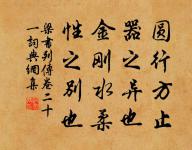 圆行方止
器之异也
金刚水柔
性之别也
梁书列传卷二十
一词典网集